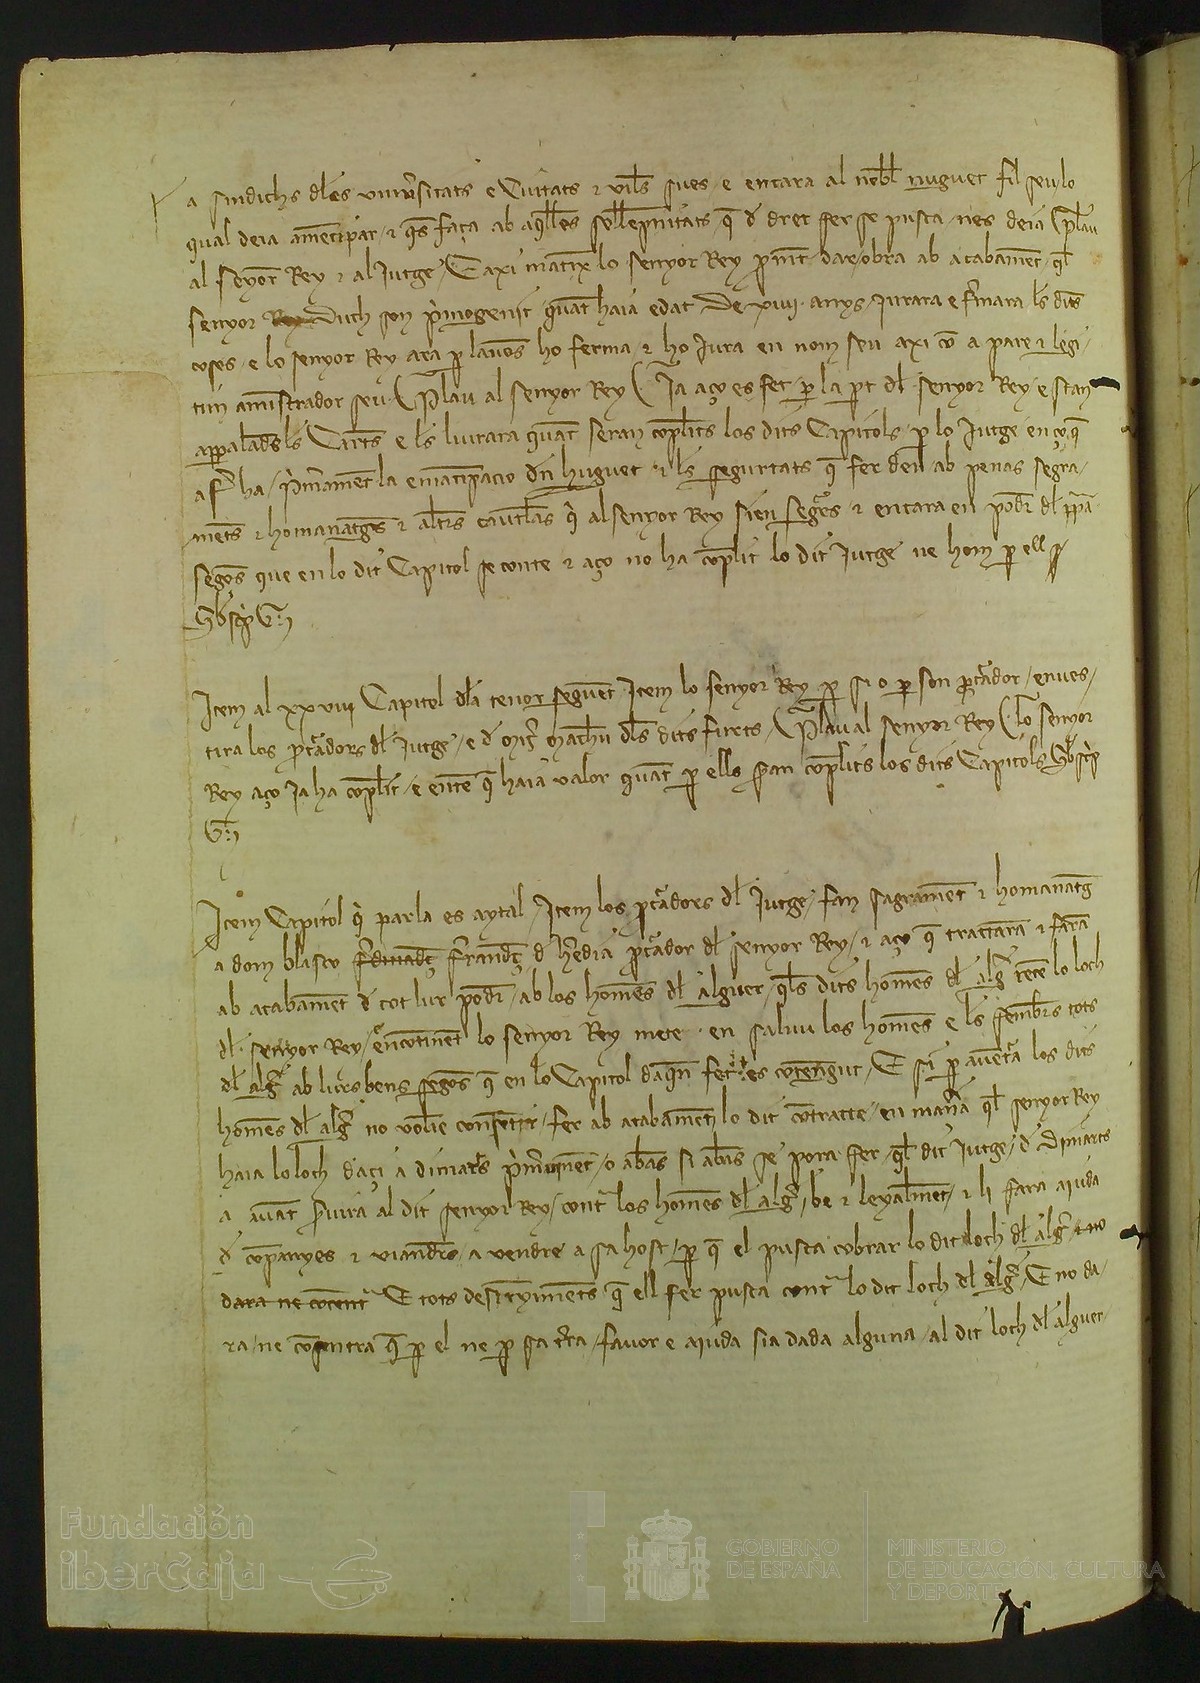 a sindichs dles uniu̅sitats e Ciutats ⁊ vils sues e encara al nobl nuguet fil seu lo
qual deia amencipar ⁊ q̅s faça ab aq̅lles sollepnitats q̅ d dret fer se pusca nes deia Plau
al Seyor Rey ⁊ al Jutge E axi matex lo senyor Rey p̅met dar obra ab acabame̅t q̅l
senyor Rey Duch son p̅mogenit qua̅t haia edat De xiiij anys Jurara e f̅mara ls dits
coses e lo senyor Rey ara p̅ lauos ho ferma ⁊ ho Jura en nom seu axi co̅ a pare ⁊ legi
tim amistrador seu Plau al senyor Rey Ja aço es fet p̅ la p̅t dl senyor Rey e stan
appalads ls Carts e ls liurara qua̅t seran co̅plits los dits Capitols p̅ lo Jutge en ço q̅
a f̅ ha p̅mame̅t la emancipacio d̅n huguet ⁊ ls segurtats q̅ fer deu ab penas segra
me̅ts ⁊ homanatges ⁊ alt̅s cauteles q̅ al senyor Rey sien segu̅s ⁊ encara en pod̅ dl
sego̅s que en lo dit Capitol se conte ⁊ aço no ha co̅plit lo dit Jutge ne hom p̅ ell
Item al xxviij Capitol dla tenor segue̅t Item lo senyor Rey p̅ si o p̅ son p̅curador enves
tira los p̅curadors dl Jutge e d Mic̅ Mach̅u dls dits firets Plau al senyor Rey Lo senyor
Rey aço ja ha co̅plit e ente̅ q̅ haia valor qua̅t p̅ ells s̅an co̅plits los dits Capitols
Item Capitol q̅ parla es aytal Item los p̅curadors dl Jutge fan sagrame̅t ⁊ homanatg
a dom blasco f̅rnandç d h̅edia p̅curador dl senyor Rey ⁊ aço q̅ trattara̅ ⁊ fara̅
ab acabame̅t d tot lur pod̅ ab los home̅s dl alguer q̅ls dits home̅s dl alg̅ rete̅ lo loch
dl senyor Rey encontine̅t lo senyor Rey mete en saluu los home̅s e ls fembr̅s tots
dl alg̅ ab lurs bens sego̅s q̅ en lo Capitol daq̅n fet es co̅te̅ngut E si p̅ aue̅t̅a los dits
home̅s dl alg̅ no volie̅ consentir fer ab acabame̅t lo dit co̅tracte en man̅a q̅l senyor Rey
haia lo loch daçi a dimarts p̅m̅ vine̅t o aba̅s si aba̅s se pora fer q̅l dit Jutge d Dimarts
a aua̅t s̅uira al dit senyor Rey cont̅ los home̅s dl alg̅ be ⁊ leyalme̅t ⁊ li fara aiuda
d co̅panyes ⁊ viand̅s a vendre a sa host p̅ q̅ el pusca cobrar lo dit loch dl alg̅ e no
dara ne co̅sent̅ E tots destruyime̅ts q̅ ell fer pusca cont̅ lo dit loch dl alg̅ E no da
ra ne co̅sentra q̅ p̅ el ne p̅ sa t̅ra fauor e aiuda sia dada alguna al dit loch dl alguer
Fundación
iberCaja
GOBIERNO
DE ESPAÑA
MINISTERIO
DE EDUCACIÓN, CULTURA
Y DEPORTE